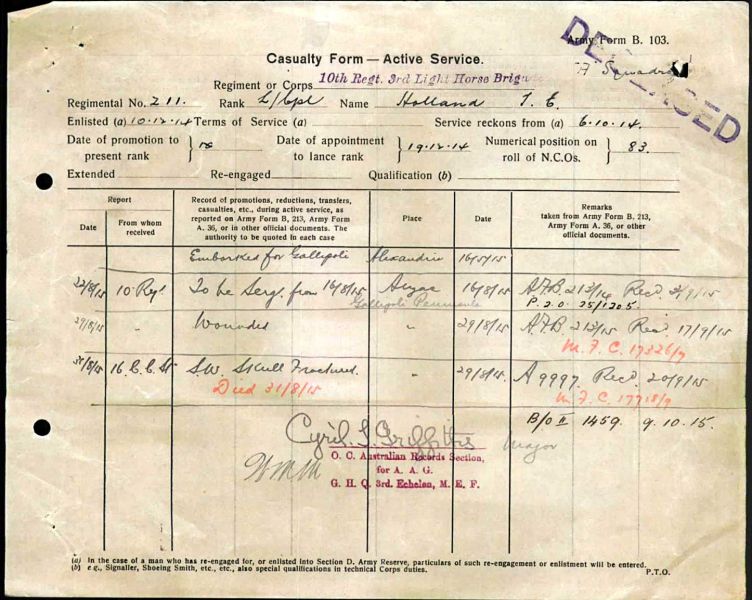 Army Form B. 103.
DECEASED
"A" Squadron
Casualty Form — Active Service.
Regiment or Corps 10th Regt. 3rd Light Horse Brigade
Regimental No. 211. Rank L/Cpl Name Holland T. E.
Enlisted (a) 10.12.14 Terms of Service (a) Service reckons from (a) 6.10.14.
Date of promotion to present rank } Date of appointment to lance rank } 19.12.14 Numerical position on roll of N.C.Os. } 83.
Extended Re-engaged Qualification (b)
Report
Date
From whom received
Record of promotions, reductions, transfers, casualties, etc., during active service, as reported on Army Form B, 213, Army Form A. 36, or in other official documents. The authority to be quoted in each case
Place
Date
Remarks
taken from Army Form B, 213, Army Form A. 36, or other official documents.
Embarked for Gallipoli Alexandria 16/5/15
22/8/15 10 Regt To be Sergt from 16/8/15 Anzac 16/8/15 A.F.B. 213/14 Recd 2/9/15
Gallipoli Peninsula P.20. 25/1205.
29/8/15 " Wounded " 29/8/15 A.F.B. 213/15 Recd 17/9/15
M.F.C. 17326/7
16 C.C.St S.W. Skull Fractured. " 29/8/15. A 9997 Recd 20/9/15
Died 31/8/15 M.F.C. 17718/7
B/O II 1459. 9.10.15.
Cyril L. Griffiths Major
O. C. Australian Records Section,
for A. A. G.
G. H. Q. 3rd. Echelon, M. E. F.
(a) In the case of a man who has re-engaged for, or enlisted into Section D. Army Reserve, particulars of such re-engagement or enlistment will be entered.
(b) e.g., Signaller, Shoeing Smith, etc., etc., also special qualifications in technical Corps duties.
P.T.O.